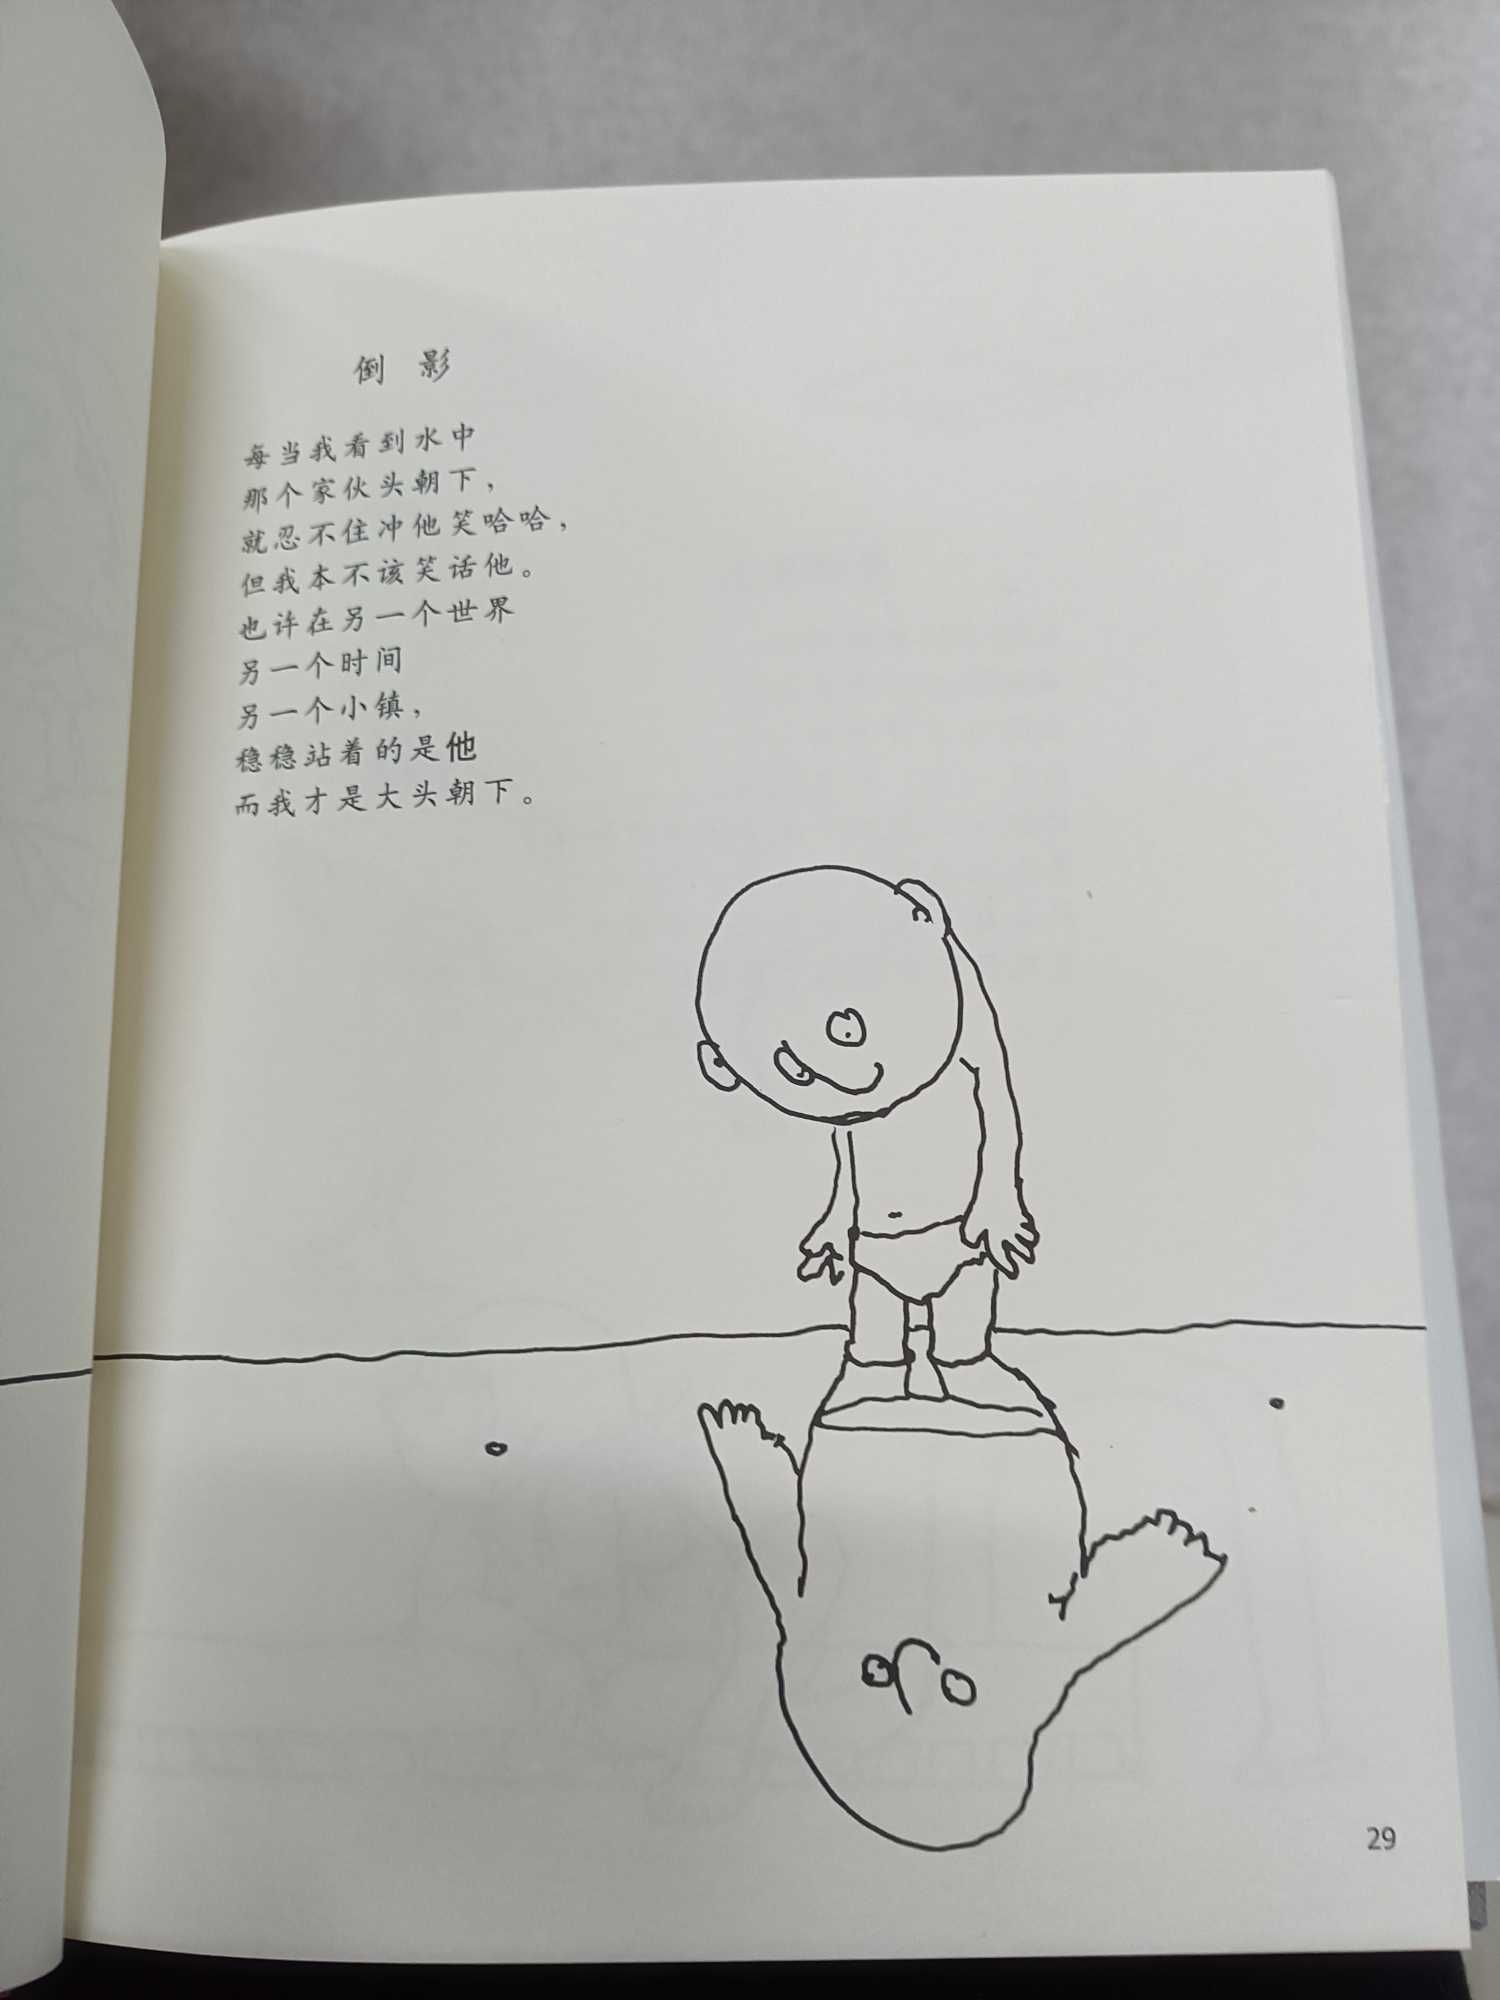 倒 影
每当我看到水中
那个家伙头朝下，
就忍不住冲他笑哈哈，
但我本不该笑话他。
也许在另一个世界
另一个时间
另一个小镇，
稳稳站着的是他
而我才是大头朝下。
29